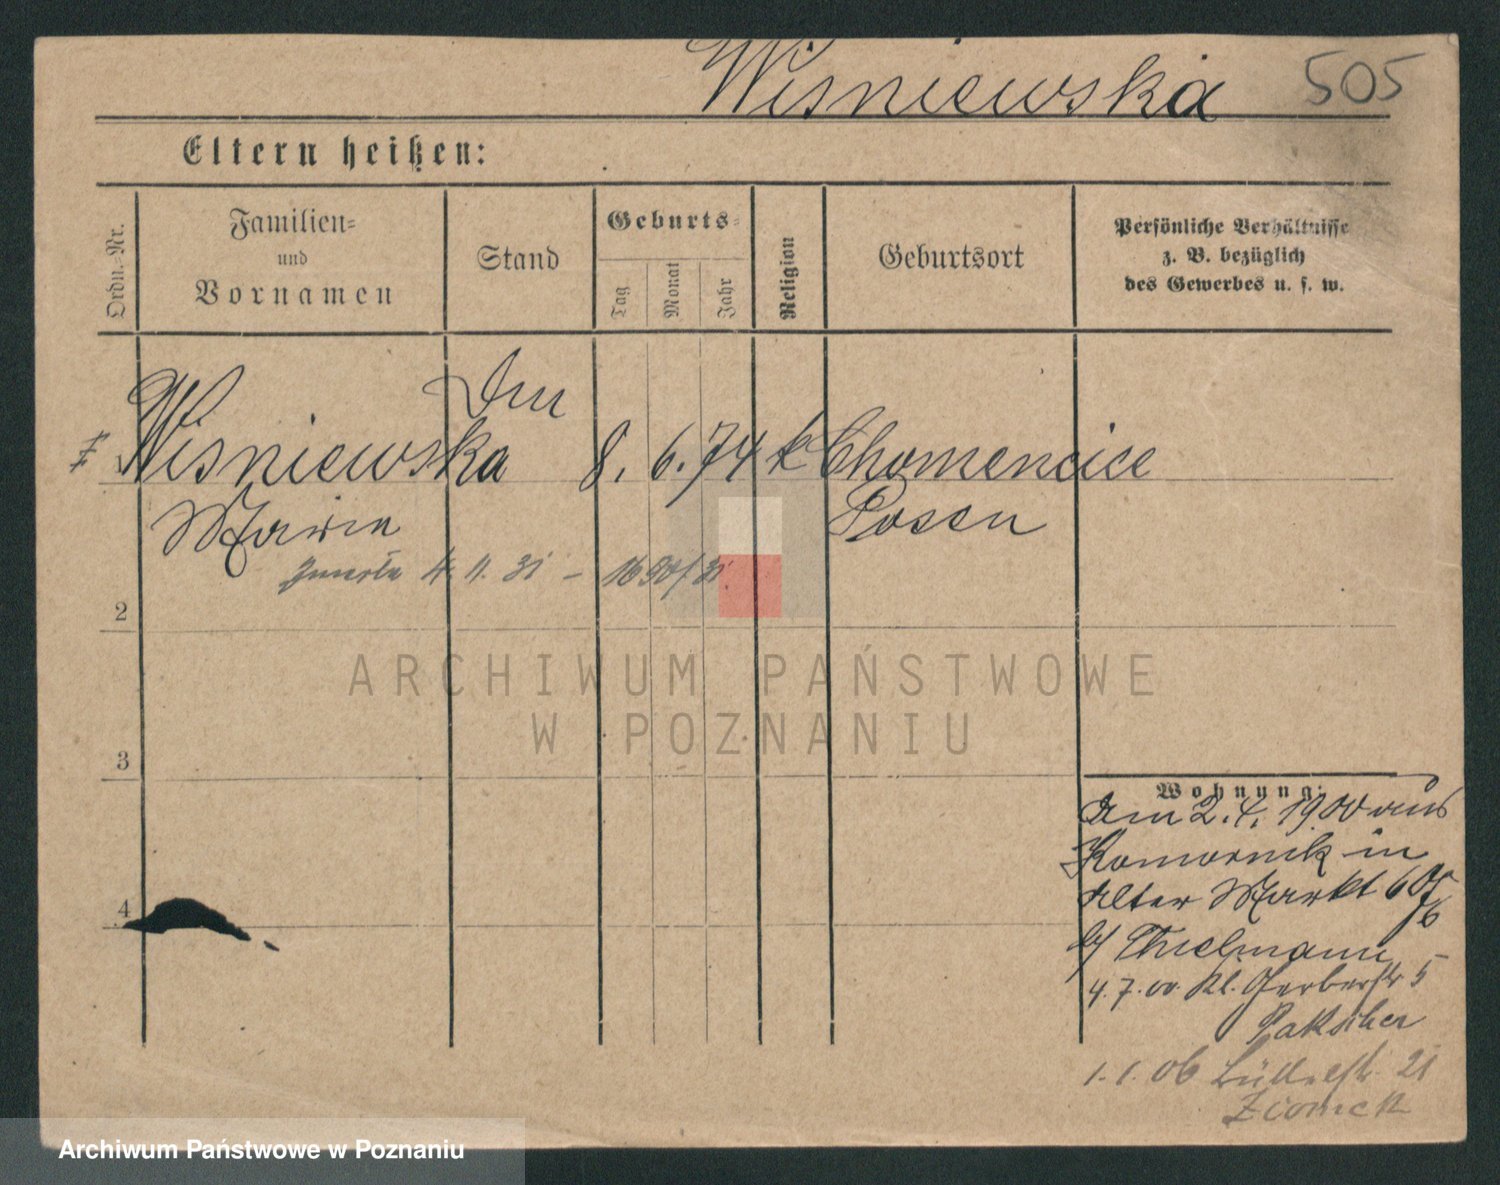 Wiśniewska 505
Eltern heißen:
Ordn.-Nr.
Familien-
und
Vornamen
Stand
Geburts-
Tag
Monat
Jahr
Religion
Geburtsort
Persönliche Verhältnisse
z. B. bezüglich
des Gewerbes u. s. w.
Wiśniewska 8. 6. 74 k Chomencice
Marie Posen
zmarła 4. 11. 31 – 1650/31
2
ARCHIWUM PAŃSTWOWE
W POZNANIU
3
Wohnung:
Am 2. 4. 1900 aus
Komornik in
Alter Markt
b/ Thielmann
4. 7. 00. Kl. Gerberstr 5
Pakscher
4
1. 1. 06 21
Zionek
Archiwum Państwowe w Poznaniu